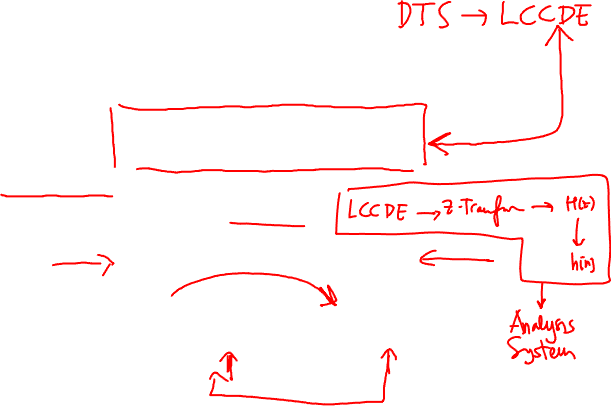 DTS → LCCDE
LCCDE → Z-Transform → H(z)
↓
h[n]
↓
Analysis
System